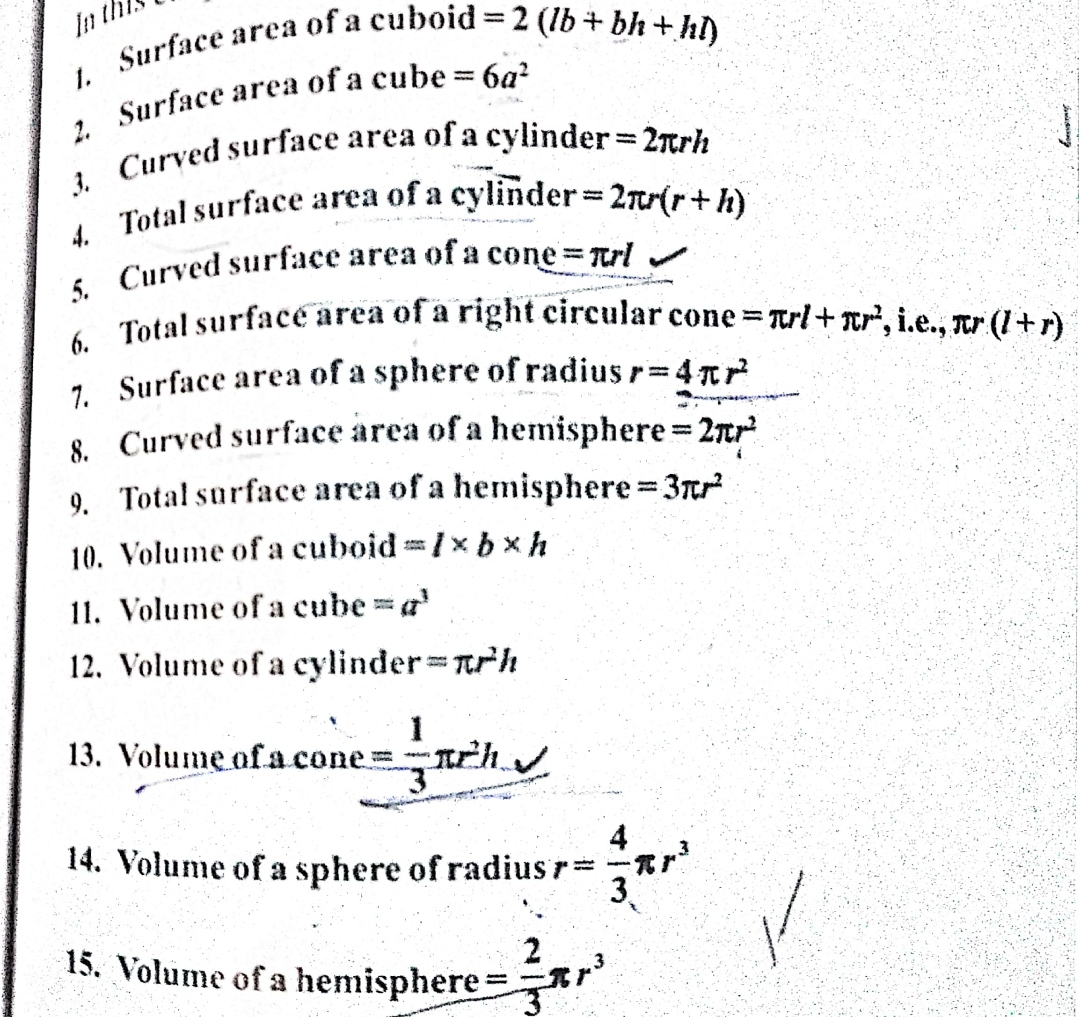 In this
1. Surface area of a cuboid = 2 (lb + bh + hl)
2. Surface area of a cube = 6a²
3. Curved surface area of a cylinder = 2πrh
4. Total surface area of a cylinder = 2πr(r + h)
5. Curved surface area of a cone = πrl ✓
6. Total surface area of a right circular cone = πrl + πr², i.e., πr (l + r)
7. Surface area of a sphere of radius r = 4πr²
8. Curved surface area of a hemisphere = 2πr²
9. Total surface area of a hemisphere = 3πr²
10. Volume of a cuboid = l × b × h
11. Volume of a cube = a³
12. Volume of a cylinder = πr²h
13. Volume of a cone = 1/3 πr²h ✓
14. Volume of a sphere of radius r = 4/3 πr³
15. Volume of a hemisphere = 2/3 πr³